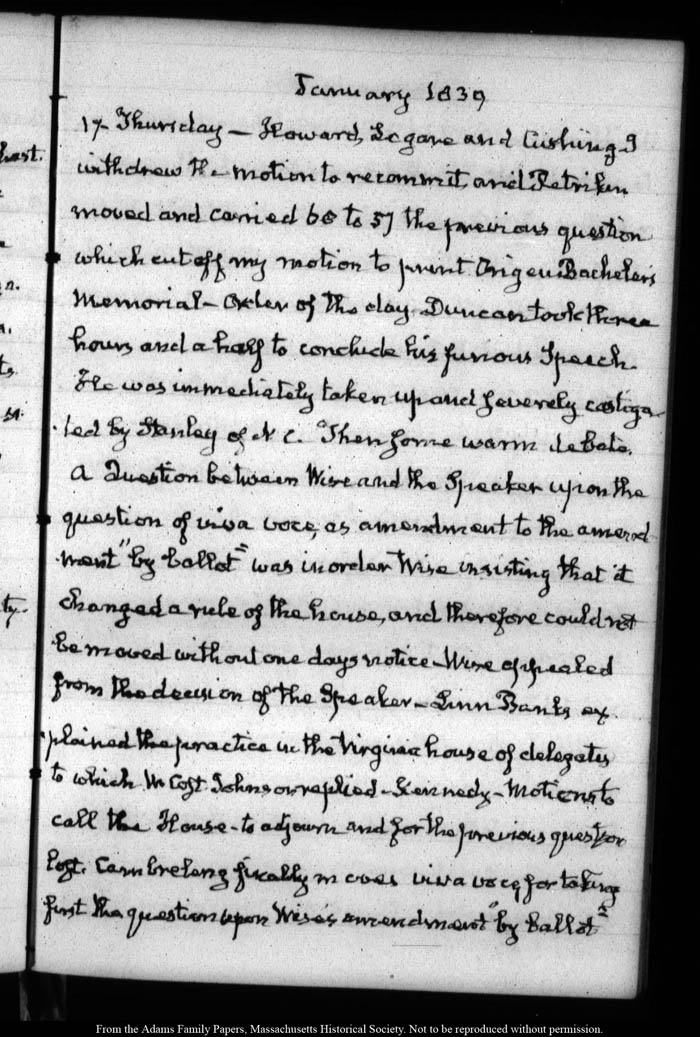 January 1839
17. Thursday — Howard, Legare and Cushing. I
withdrew the motion to recommit, and Petriken
moved and carried 68 to 57 the previous question
which cut off my motion to print Origen Bacheler's
Memorial — Order of the day. Duncan took three
hours and a half to conclude his furious Speech.
He was immediately taken up and severely castiga-
ted by Stanley of N C. Then some warm debate.
A Question between Wise and the Speaker upon the
question of viva voce, as amendment to the amend-
ment "by ballot" was in order Wise insisting that it
changed a rule of the house, and therefore could not
be moved without one days notice — Wise appealed
from the decision of the Speaker — Linn Banks ex-
plained the practice in the Virginia house of delegates
to which W Cost Johnson replied — Kennedy — Motions to
call the House — to adjourn and for the previous question
lost. Cambreleng finally moves viva voce, for taking
first the question upon Wise's amendment "by ballot"
hast.
n.
n.
ts
st.
ty.
From the Adams Family Papers, Massachusetts Historical Society. Not to be reproduced without permission.